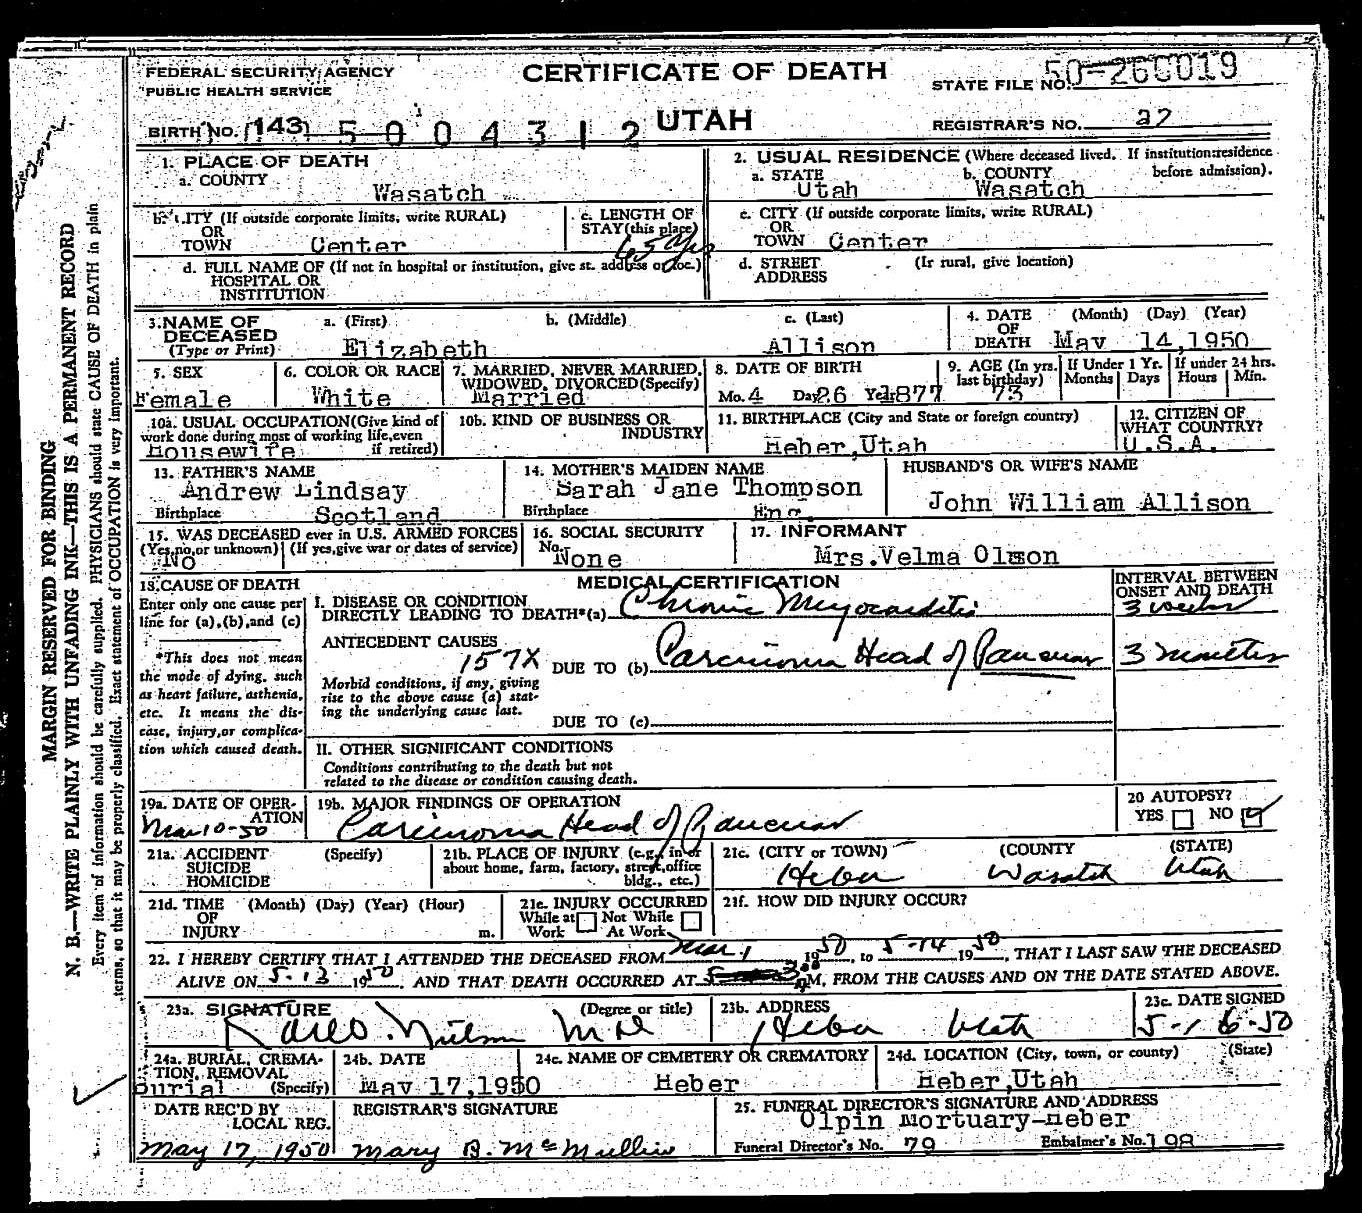 CERTIFICATE OF DEATH
UTAH
FEDERAL SECURITY AGENCY
PUBLIC HEALTH SERVICE
STATE FILE NO. 50-260019
BIRTH NO. 143 5004312
REGISTRAR'S NO. 27
MARGIN RESERVED FOR BINDING
N. B.—WRITE PLAINLY WITH UNFADING INK—THIS IS A PERMANENT RECORD
Every item of information should be carefully supplied. PHYSICIANS should state CAUSE OF DEATH in plain
terms, so that it may be properly classified. Exact statement of OCCUPATION is very important.
1. PLACE OF DEATH
a. COUNTY
Wasatch
2. USUAL RESIDENCE (Where deceased lived. If institution: residence
before admission).
a. STATE b. COUNTY
Utah Wasatch
b. CITY (If outside corporate limits, write RURAL)
OR
TOWN Center
c. LENGTH OF
STAY (this place)
65 Yrs
c. CITY (If outside corporate limits, write RURAL)
OR
TOWN Center
d. FULL NAME OF (If not in hospital or institution, give st. address or loc.)
HOSPITAL OR
INSTITUTION
d. STREET (If rural, give location)
ADDRESS
3. NAME OF
DECEASED
(Type or Print)
a. (First) b. (Middle) c. (Last)
Elizabeth Allison
4. DATE (Month) (Day) (Year)
OF
DEATH May 14,1950
5. SEX
Female
6. COLOR OR RACE
White
7. MARRIED, NEVER MARRIED,
WIDOWED, DIVORCED (Specify)
Married
8. DATE OF BIRTH
Mo. 4 Day 26 Yr. 1877
9. AGE (In yrs.
last birthday)
73
If Under 1 Yr.
Months Days
If under 24 hrs.
Hours Min.
10a. USUAL OCCUPATION (Give kind of
work done during most of working life, even
if retired)
Housewife
10b. KIND OF BUSINESS OR
INDUSTRY
11. BIRTHPLACE (City and State or foreign country)
Heber,Utah
12. CITIZEN OF
WHAT COUNTRY?
U.S.A.
13. FATHER'S NAME
Andrew Lindsay
Birthplace Scotland
14. MOTHER'S MAIDEN NAME
Sarah Jane Thompson
Birthplace Eng.
HUSBAND'S OR WIFE'S NAME
John William Allison
15. WAS DECEASED ever in U.S. ARMED FORCES
(Yes, no, or unknown) (If yes, give war or dates of service)
No
16. SOCIAL SECURITY
No. None
17. INFORMANT
Mrs.Velma Olson
18. CAUSE OF DEATH
Enter only one cause per
line for (a), (b), and (c)
*This does not mean
the mode of dying, such
as heart failure, asthenia,
etc. It means the dis-
ease, injury, or complica-
tion which caused death.
MEDICAL CERTIFICATION
INTERVAL BETWEEN
ONSET AND DEATH
I. DISEASE OR CONDITION
DIRECTLY LEADING TO DEATH*(a) Chronic Myocarditis
3 weeks
ANTECEDENT CAUSES
157X DUE TO (b) Carcinoma Head of Pancreas
3 months
Morbid conditions, if any, giving
rise to the above cause (a) stat-
ing the underlying cause last.
DUE TO (c)
II. OTHER SIGNIFICANT CONDITIONS
Conditions contributing to the death but not
related to the disease or condition causing death.
19a. DATE OF OPER-
ATION
Mar 10-50
19b. MAJOR FINDINGS OF OPERATION
Carcinoma Head of Pancreas
20 AUTOPSY?
YES NO
21a. ACCIDENT (Specify)
SUICIDE
HOMICIDE
21b. PLACE OF INJURY (e.g., in or
about home, farm, factory, street, office
bldg., etc.)
21c. (CITY or TOWN) (COUNTY (STATE)
Heber Wasatch Utah
21d. TIME (Month) (Day) (Year) (Hour)
OF
INJURY m.
21e. INJURY OCCURRED
While at Not While
Work At Work
21f. HOW DID INJURY OCCUR?
22. I HEREBY CERTIFY THAT I ATTENDED THE DECEASED FROM Mar 1 1950, to 5-14 1950, THAT I LAST SAW THE DECEASED
ALIVE ON 5-13 1950, AND THAT DEATH OCCURRED AT 3:00 M, FROM THE CAUSES AND ON THE DATE STATED ABOVE.
23a. SIGNATURE (Degree or title)
Karl O. Nielson M D
23b. ADDRESS
Heber Utah
23c. DATE SIGNED
5-16-50
24a. BURIAL, CREMA-
TION, REMOVAL
(Specify)
Burial
24b. DATE
May 17,1950
24c. NAME OF CEMETERY OR CREMATORY
Heber
24d. LOCATION (City, town, or county) (State)
Heber,Utah
DATE REC'D BY
LOCAL REG.
May 17, 1950
REGISTRAR'S SIGNATURE
Mary B. McMullin
25. FUNERAL DIRECTOR'S SIGNATURE AND ADDRESS
Olpin Mortuary-Heber
Funeral Director's No. 79 Embalmer's No. 198